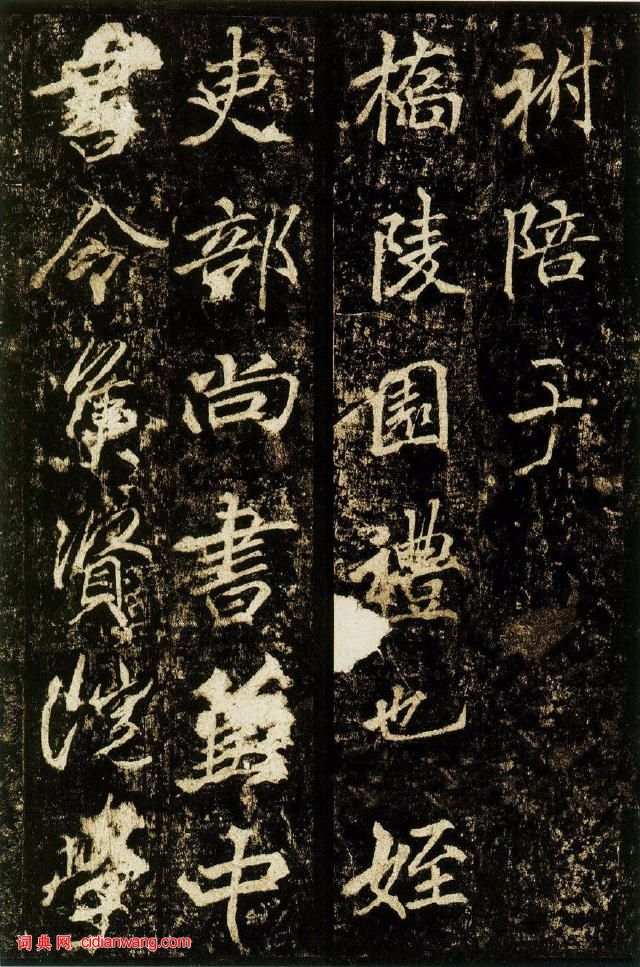 祔陪于
橋陵園禮也姪
吏部尚書兼中
書令集賢院學
词典网 cidianwang.com